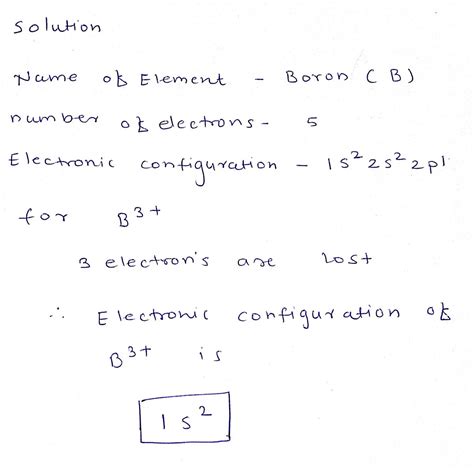 Solution
Name of Element - Boron (B)
number of electrons - 5
Electronic configuration - 1s² 2s² 2p¹
for B³⁺
3 electron's are lost
∴ Electronic configuration of
B³⁺ is
1s²